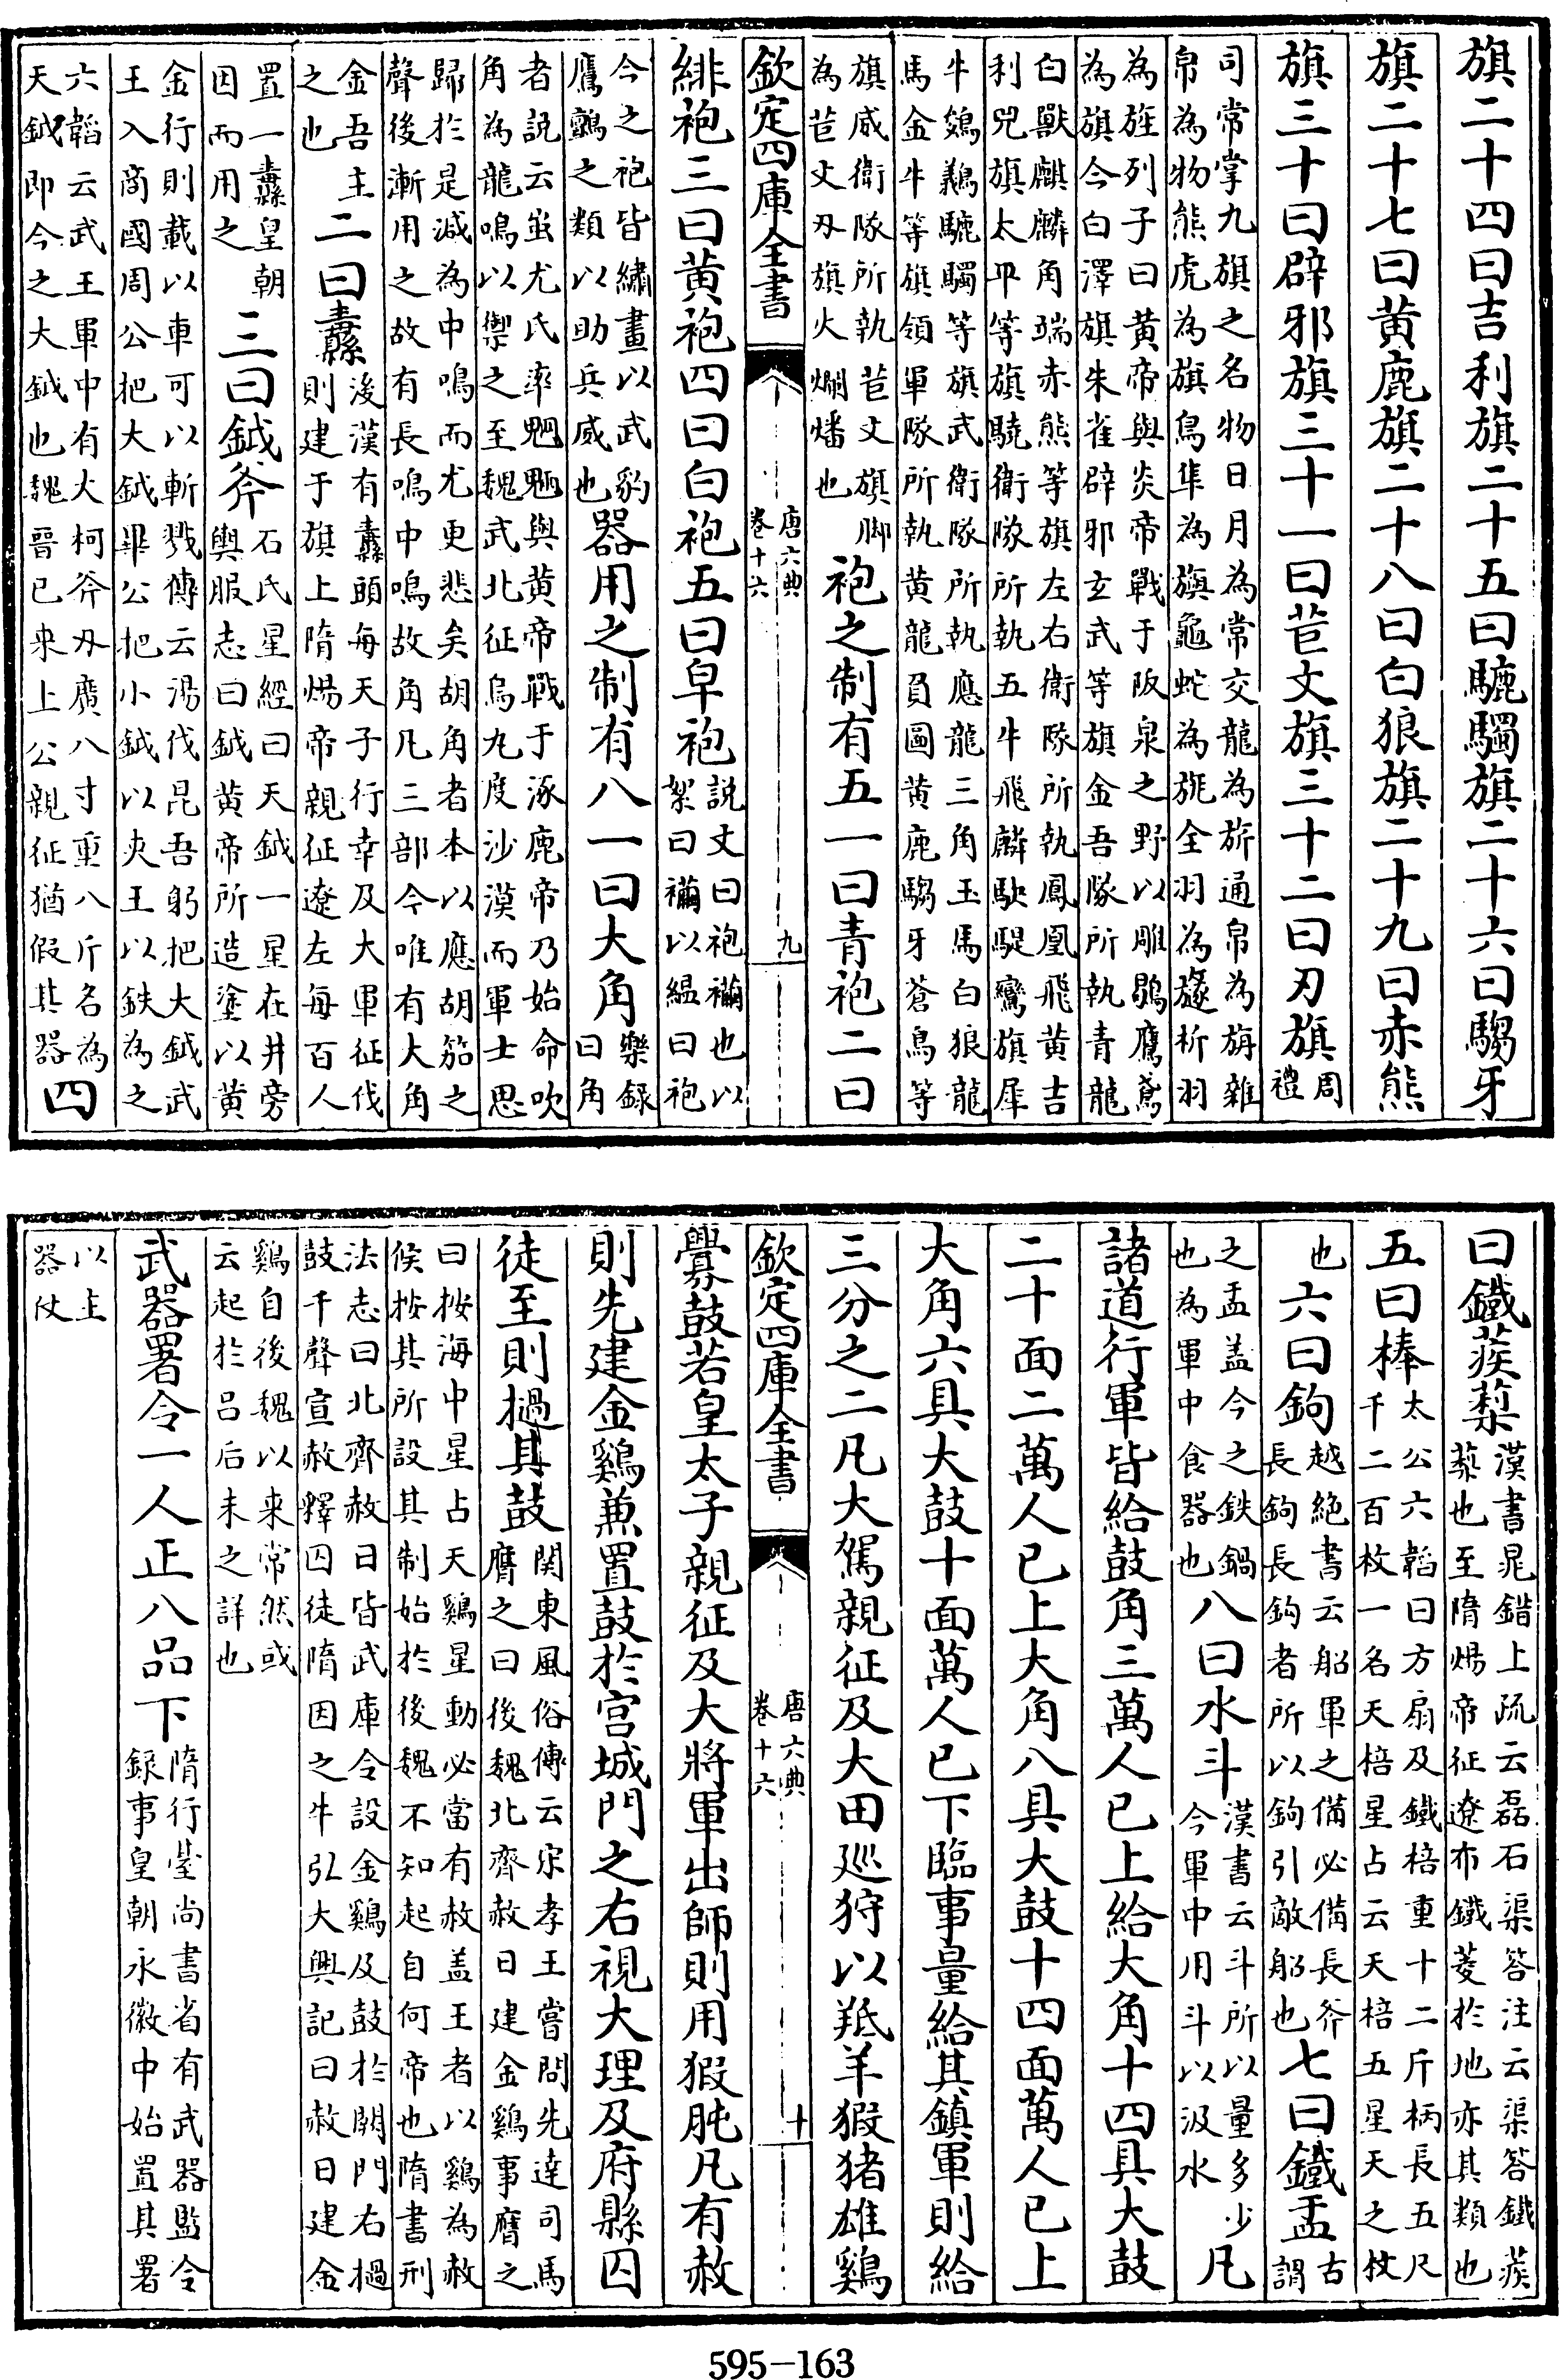 旗二十四曰吉利旗二十五曰騼䮷旗二十六曰騶牙
旗二十七曰黄鹿旗二十八曰白狼旗二十九曰赤熊
旗三十曰辟邪旗三十一曰苣文旗三十二曰刃旗周禮
司常掌九旗之名物日月為常交龍為旂通帛為旃雜
帛為物熊虎為旗鳥隼為旟龜蛇為旐全羽為旞析羽
為旌列子曰黄帝與炎帝戰于阪泉之野以雕鶡鷹鳶
為旗今白澤旗朱雀辟邪玄武等旗金吾隊所執青龍
白獸麒麟角端赤熊等旗左右衛隊所執鳳凰飛黄吉
利兕旗太平等旗驍衛隊所執五牛飛麟駃騠鸞旗犀
牛鵕鸃騼䮷等旗武衛隊所執應龍三角玉馬白狼龍
馬金牛等旗領軍隊所執黄龍員圖黄鹿騶牙蒼烏等
旗威衛隊所執苣文旗脚
為苣文刃旗火爛燔也
袍之制有五一曰青袍二曰
欽定四庫全書 唐六典 卷十六 九
緋袍三曰黄袍四曰白袍五曰皁袍
說文曰袍襺也以
絮曰襺以緼曰袍
今之袍皆繡畫以武豹
鷹鸇之類以助兵威也
器用之制有八一曰大角
樂録
曰角
者説云蚩尤氏率魍魎與黄帝戰于涿鹿帝乃始命吹
角為龍鳴以禦之至魏武北征烏丸度沙漠而軍士思
歸於是減為中鳴而尤更悲矣胡角者本以應胡笳之
聲後漸用之故有長鳴中鳴故角凡三部今唯有大角
金吾主
之也
二曰纛
後漢有纛頭每天子行幸及大軍征伐
則建于旗上隋煬帝親征遼左每百人
置一纛皇朝
因而用之
三曰鉞斧
石氏星經曰天鉞一星在井旁
輿服志曰鉞黄帝所造塗以黄
金行則載以車可以斬戮傳云湯伐昆吾躬把大鉞武
王入商國周公把大鉞畢公把小鉞以夾王以鉄為之
六韜云武王軍中有大柯斧刃廣八寸重八斤名為
天鉞即今之大鉞也魏晉已来上公親征猶假其器
四
曰鐵蒺蔾
漢書晁錯上疏云磊石渠答注云渠答鐵蒺
蔾也至隋煬帝征遼布鐵菱於地亦其類也
五曰棒
太公六韜曰方扇及鐵棓重十二斤柄長五尺
千二百枚一名天棓星占云天棓五星天之杖
也
六曰鉤
越絶書云船軍之備必備長斧
長鉤長鉤者所以鉤引敵船也
七曰鐵盂
古
謂
之盂盖今之鉄鍋
也為軍中食器也
八曰水斗
漢書云斗所以量多少
今軍中用斗以汲水
凡
諸道行軍皆給鼓角三萬人已上給大角十四具大鼓
二十面二萬人已上大角八具大鼓十四面萬人已上
大角六具大鼓十面萬人已下臨事量給其鎮軍則給
三分之二凡大駕親征及大田巡狩以羝羊猳猪雄鷄
欽定四庫全書 唐六典 卷十六 十
釁鼓若皇太子親征及大將軍出師則用猳肫凡有赦
則先建金鷄兼置鼓於宫城門之右視大理及府縣囚
徒至則撾其鼓
関東風俗傳云宋孝王嘗問先達司馬
膺之曰後魏北齊赦日建金鷄事膺之
曰按海中星占天鷄星動必當有赦盖王者以鷄為赦
候按其所設其制始於後魏不知起自何帝也隋書刑
法志曰北齊赦日皆武庫令設金鷄及鼓於闕門右撾
鼓千聲宣赦釋囚徒隋因之牛弘大興記曰赦日建金
鷄自後魏以来常然或
云起於吕后未之詳也
武器署令一人正八品下
隋行臺尚書省有武器監令
録事皇朝永徽中始置其署
以主
器仗
595-163